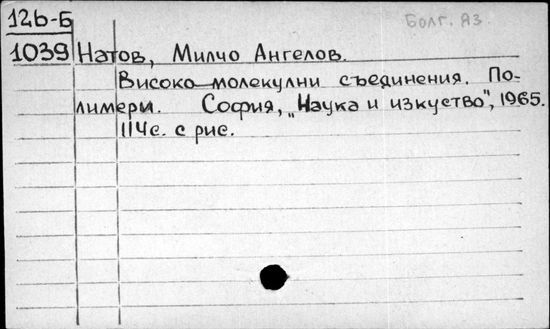 126-Б
Болг. яз
1039 Натов, Милчо Ангелов.
Високо молекулни съединения. По-
лимери. София, „Наука и изкуство", 1965.
114с. с рис.